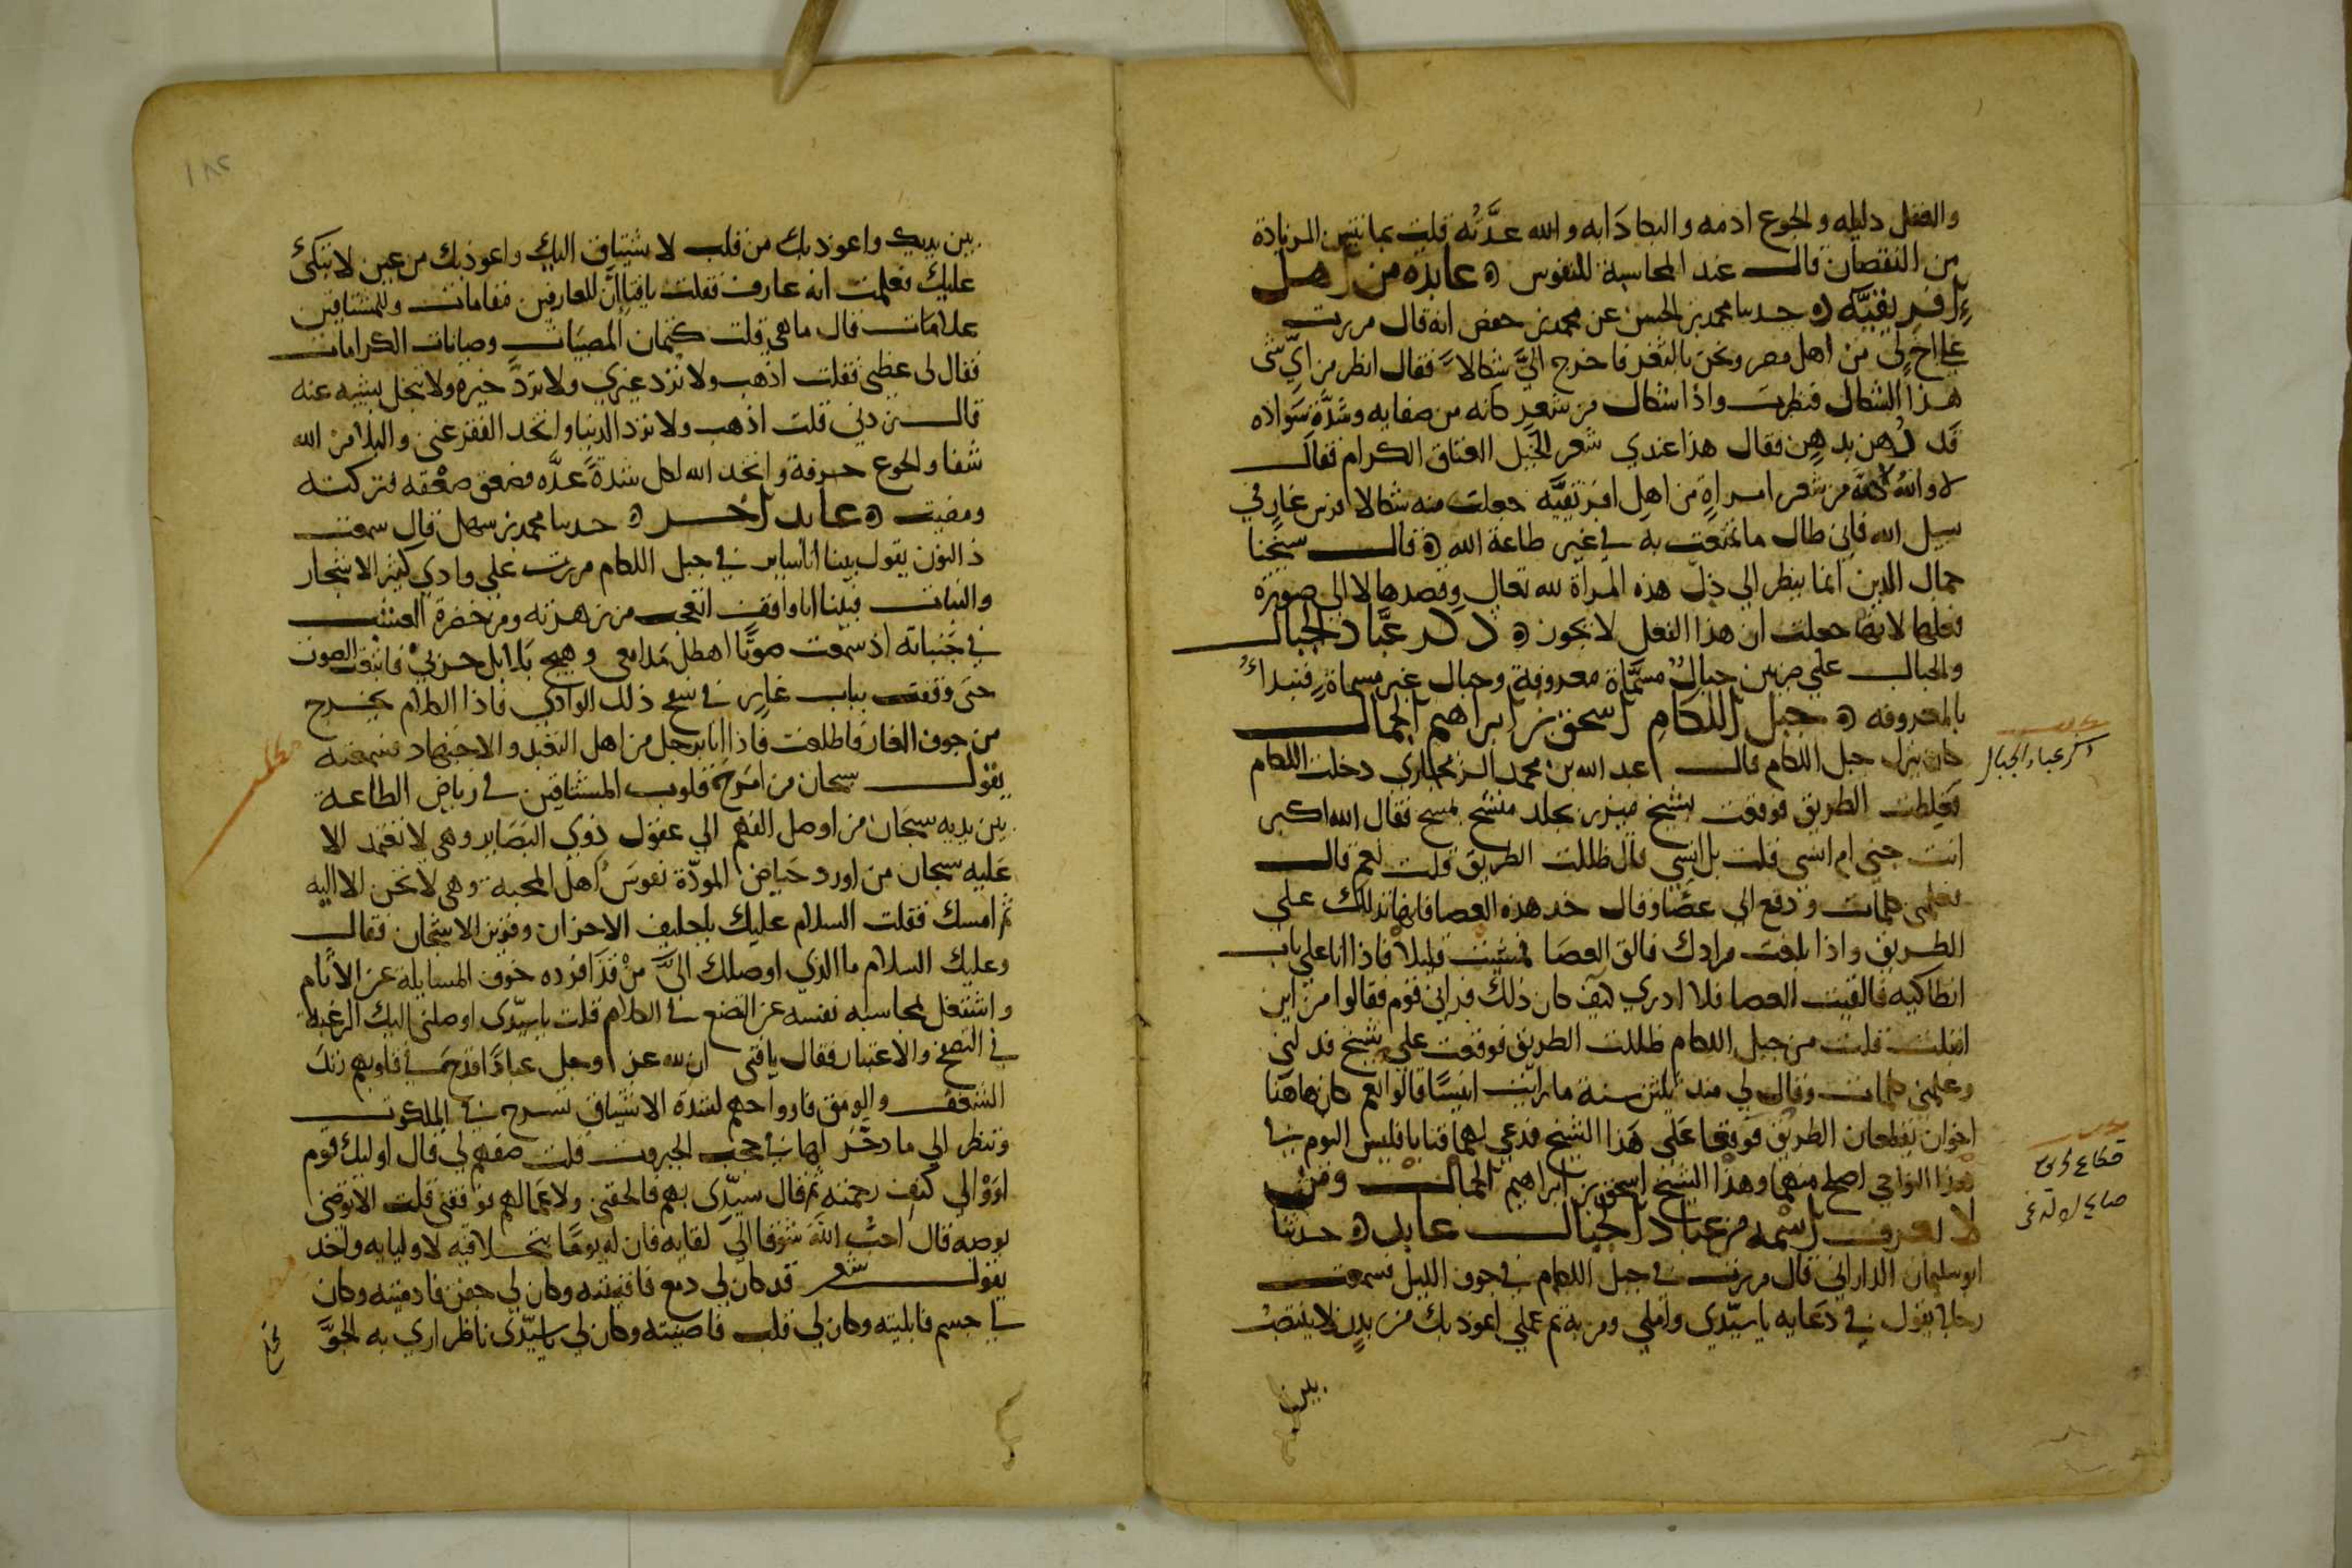 والعقل دليله والجوع ادمه والبكا دَابه والله عدَّتُه قلت بما تتبين الزيادة
من النقصان قال عند المحاسبة للنفوس عابدة من اهل
إفريقيَّه حدثنا محمد بن الحسن عن محمد بن حفص انه قال مررت
على اخٍ لي من اهل مصر ونحن بالثغر فاخرج اليَّ شكالاً فقال انظر من ايّ شى
هذا الشكال فنظرت واذا شكال من شعرٍ كانه من صفايه وشدَّة سَوادِه
قد دُهن بدهن فقال هذا عندي شعر الخيل العتاق الكرام فقال
لا والله لكنه من شعر امراةٍ من اهل افريقيَّه جعلت منه شكالا لفرس غازٍ في
سبيل الله فاني طال ما تمتعت به في غير طاعة الله قال شيخنا
جمال الدين انما ينظر الى ذِلّ هذه المراة لله تعالى وقصدها لا الى صورة
فعلها لانها جعلت ان هذا الفعل لا يجوز ذكر عبَّاد الجبال
والجبال علي ضربين جبالٌ مسمَّاة معروفة وجبال غير مسماةٍ فنبداُ
بالمعروفه جبل اللكام اسحق بن ابراهيم الجمال
كان ينزل جبل اللكام قال عبد الله بن محمد دخلت اللكام
فغلطت الطريق فوقفت بشيخ ميزر بجلد متشح بمسح فقال الله اكبر
انت جني ام انسي قلت بل انسي قال ظللت الطريق قلت نعم قال
فعلمنى كلمات ودفع الي عصًا وقال خد هذه العصا فانها تدلك على
الطريق واذا بلغت مرادك فالق العصا فمشيت قليلاً فاذا انا على باب
انطاكيه فالقيت العصا فلا ادري كيف كان ذلك فراني قوم فقالوا من اين
اقبلت فقلت من جبل اللكام ظللت الطريق فوقعت على شيخ قد لي
وعلمنى كلمات وقال لي منذ ثلثين سنة ما رايت انيسًا قالوا نعم كان هاهنا
اخوان يقطعان الطريق فوقعا على هَذا الشيخ فدعي لهما فتابا فليس اليوم في
هذا النواحي اصلح منهما وهذا الشيخ اسحق بن ابراهيم الجمال ومن
لا يعرف اسمه من عباد الجبال عابد حدثنا
ابو سليمان الداراني قال مررت في جبل اللكام في جوف الليل فسمعت
رجلا يقول في دعَايه يا سيّدي واملي ومن به تم عملي اعوذ بك من بدنٍ لا ينتصبُ
بين
ذكر عباد الجبال
١٨٢
بين يديك واعوذ بك من قلب لا يشتاق اليك واعوذ بك من عين لا تبكىُ
عليك فعلمت انه عارف فقلت يا فتا إنَّ للعارفين مقامات وللمشتاقين
علامات قال ما هي قلت كتمان المصيبات وصيانات الكرامات
فقال لى عظني فقلت اذهب ولا تُرد غيري ولا تردَّ خيره ولا تبخل بشيه عنه
قال زدني قلت اذهب ولا ترد الدنيا واتخد الفقر غنى والبلا من الله
شفا والجوع حرفة واتخد الله لكل شدةً عدَّه فصعق صعقه فتركته
ومضيت عابد اخر حدثنا محمد بن سهل قال سمعت
ذا النون يقول بينا انا ساير في جبل اللكام مررت على وادي كثير الاشجار
والنبات فبينا انا واقف اتعجب من زهرته ومن خضرة العشب
في جَنباته اذ سمعت صوتًا اهطل مَدامعي وهيج بَلابل حزني فاتبعت الصوت
حتى وقفت بباب غارٍ في سفح ذلك الوادي فاذا الكلام يخرج
من جوف الغار فاطلعت فاذا انا برجل من اهل التعبد والاجتهاد فسمعته
يقول سبحان من امرج قلوب المشتاقين في رياض الطاعة
بين يديه سبحان من اوصل الفهم الي عقول ذوي البصاير وهي لا تعتمد الا
عَليه سبحان من اورد حَياض المودّة نفوسَ اهل المحبة وهى لا تحن الا اليه
ثم امسك فقلت السلام عليك يا حليف الاحزان وقرين الاشجان فقال
وعليك السلام ما الذي اوصلك اليَّ منْ قد افرده خوف المسايلة عن الأنام
واشتغل بمحاسبه نفسه عن التصنع في الكلام قلت يا سيّدي اوصلني اليك الرغبة
في التصفح والاعتبار فقال يا فتى ان لله عز وجل عبادًا قدح في قلوبهم زند
الشغف والومق فارواحهم لشدة الاشتياق تسرح في الملكوت
وتنظر الي ما دخر لها في حجب الجبروت قلت صفهم لي قال اوليك قوم
اووْا الى كنف رحمته ثم قال سيّدي بهم فالحقني ولاعَمالهم فوفقني قلت الا توصني
بوصيه قال احب الله شوقا الى لقايه فان له يومًا يتجلا فيه لاوليايه واخد
يقول شعر قد كان لي دمع فافنيته وكان لي جفن فادميته وكان
لي جسم فابليته وكان لي قلب فاضنيته وكان لي يا سيّدي ناظر اري به الحوَّ
مطلب